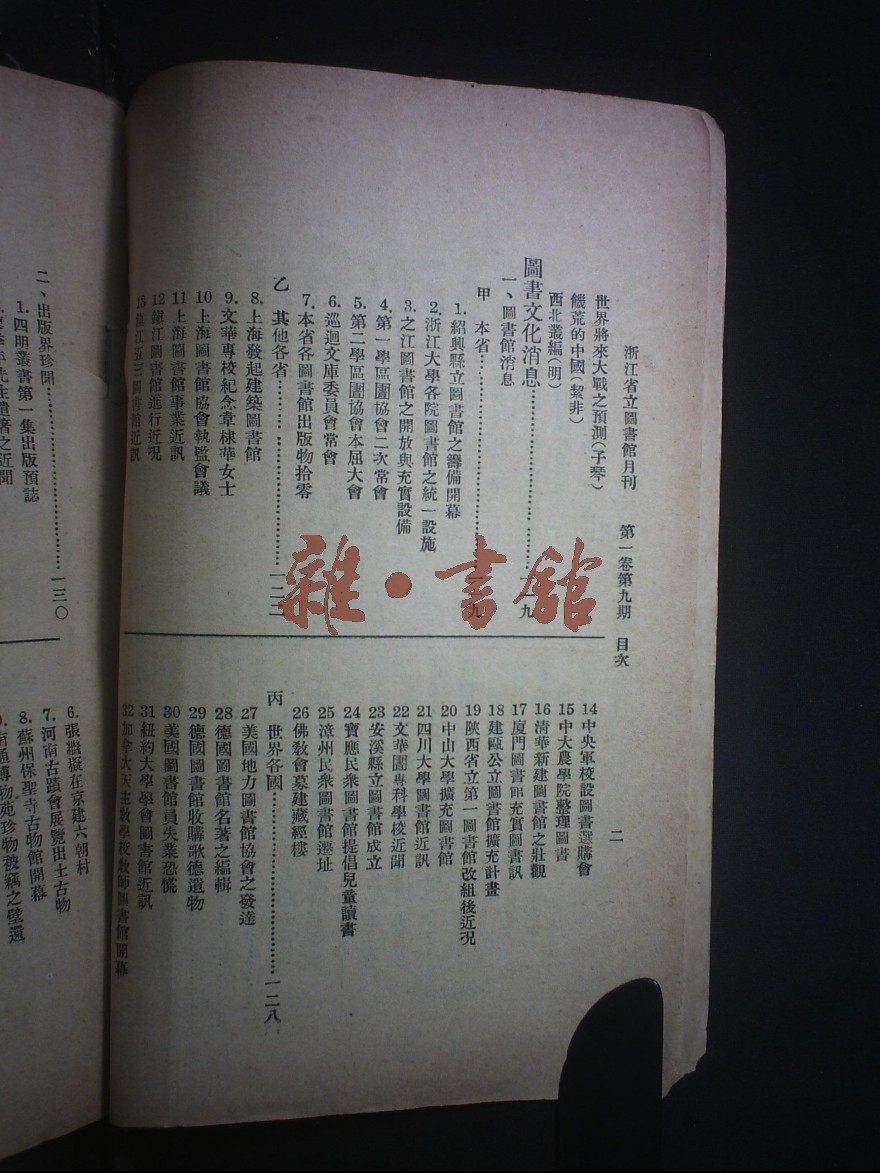 浙江省立圖書館月刊　第一卷第九期　目次
二
世界將來大戰之預測(子琴)
饑荒的中國(絜非)
西北叢編(明)
圖書文化消息……一一九
一、圖書館消息
甲　本省……一一九
1.紹興縣立圖書館之籌備開幕
2.浙江大學各院圖書館之統一設施
3.之江圖書館之開放與充實設備
4.第一學區圕協會二次常會
5.第二學區圕協會本屆大會
6.巡迴文庫委員會常會
7.本省各圖書館出版物拾零
乙　其他各省……一二二
8.上海發起建築圖書館
9.文華專校紀念韋棣華女士
10上海圖書館協會執監會議
11上海圖書館事業近訊
12鎮江圖書館進行近況
13鎮江五三圖書館近訊
14中央軍校設圖書選購會
15中大農學院整理圖書
16清華新建圖書館之壯觀
17廈門圖書館充實圖書訊
18建甌公立圖書館擴充計畫
19陝西省立第一圖書館改組後近況
20中山大學擴充圖書館
21四川大學圖書館近訊
22文華圕專科學校近聞
23安溪縣立圖書館成立
24寶應民衆圖書館提倡兒童讀書
25漳州民衆圖書館遷址
26佛教會募建藏經樓
丙　世界各國……一二八
27美國地力圖書館協會之發達
28德國圖書館名著之編輯
29德國圖書館收購歌德遺物
30美國圖書館員失業恐慌
31紐約大學學會圖書館近訊
32加拿大天主教學校教師圖書館開幕
二、出版界珍聞……一三〇
1.四明叢書第一集出版預誌
先生遺著之近聞
6.張繼擬在京建六朝村
7.河南古蹟會展覽出土古物
8.蘇州保聖寺古物館開幕
南通博物苑珍物被竊之璧還
雜·書館